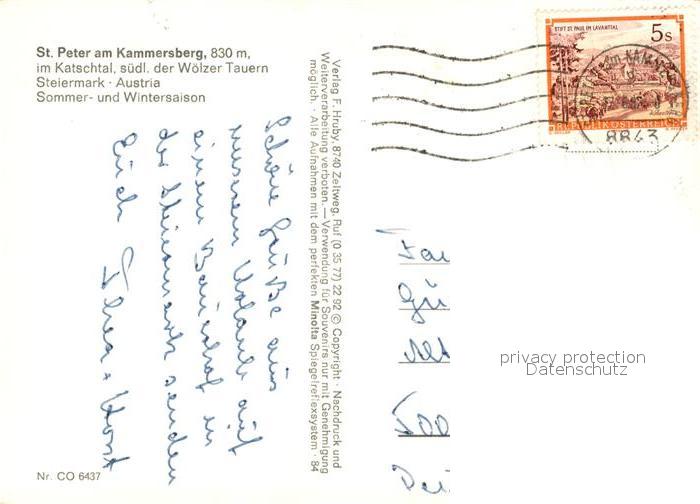 St. Peter am Kammersberg, 830 m,
im Katschtal, südl. der Wölzer Tauern
Steiermark · Austria
Sommer- und Wintersaison
Schöne Grüße aus
unserem Urlaub auf
einem Bauernhof in
der Steiermark senden
Euch Thea + Horst
Nr. CO 6437
Verlag F. Hruby 8740 Zeltweg, Ruf (0 35 77) 22 92 © Copyright · Nachdruck und
Weiterverarbeitung verboten. — Verwendung für Souvenirs nur mit Genehmigung
möglich. · Alle Aufnahmen mit dem perfekten Minolta Spiegelreflexsystem · 84
STIFT ST. PAUL IM LAVANTTAL
5 s
REPUBLIK ÖSTERREICH
8843
privacy protection
Datenschutz